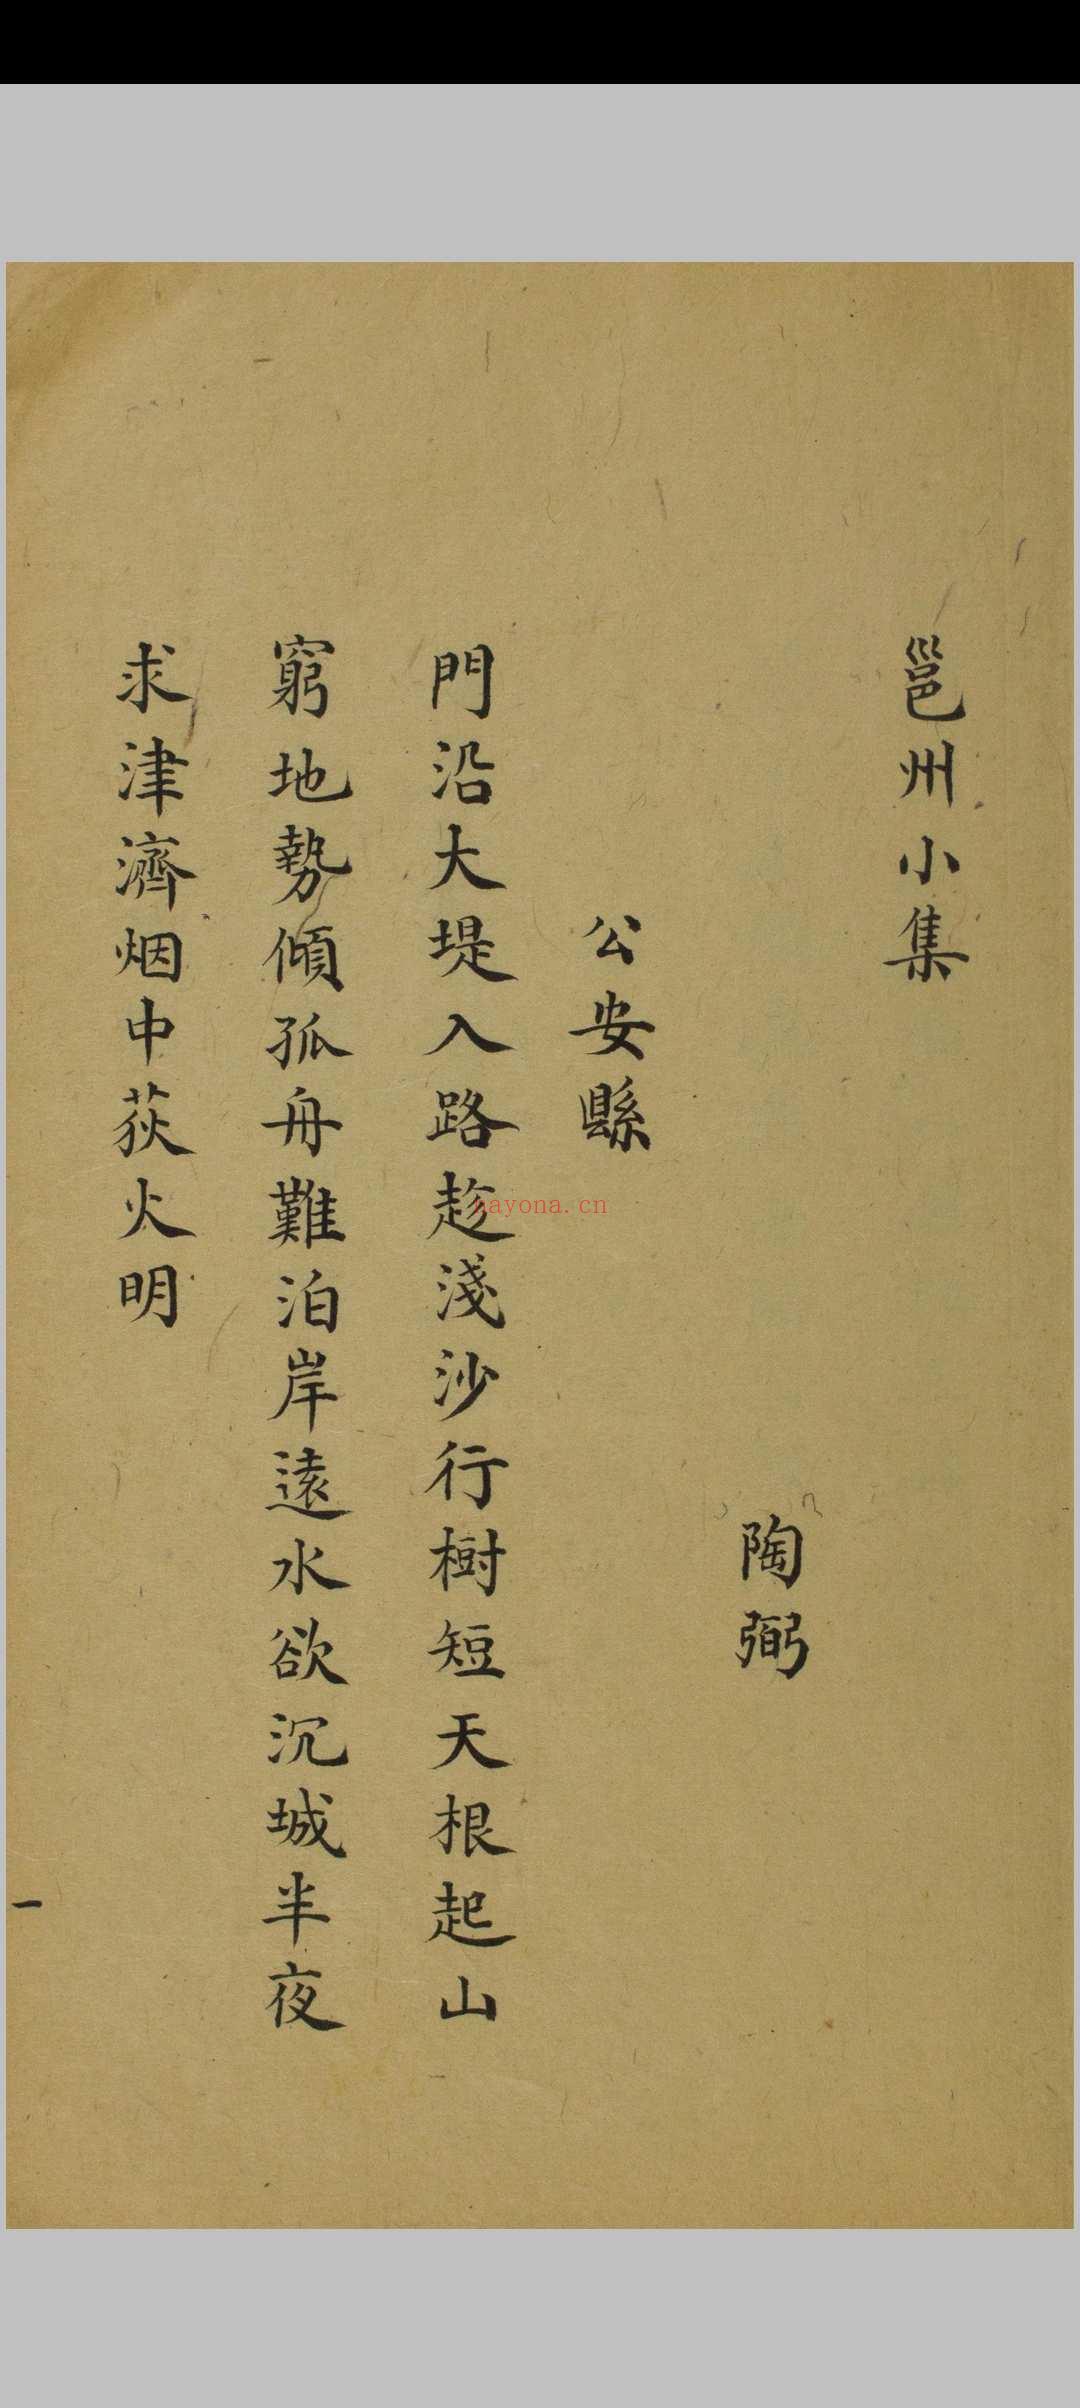 邕州小集
陶弼
公安縣
門沿大堤入路趍淺沙行樹短天根起山
窮地勢傾孤舟難泊岸遠水欲沉城半夜
求津濟烟中荻火明
一
nayona.cn